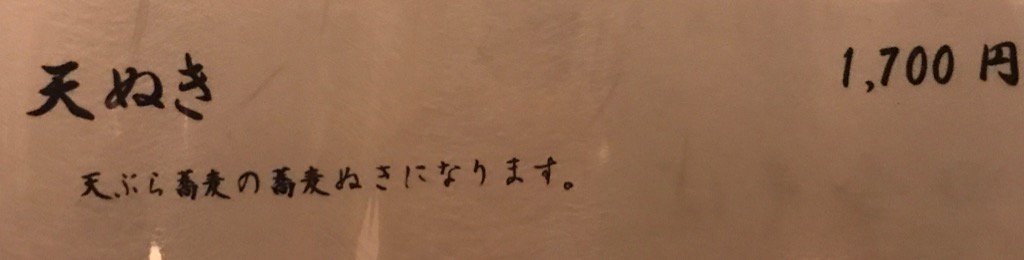 天ぬき 1,700 円
天ぷら蕎麦の蕎麦ぬきになります。